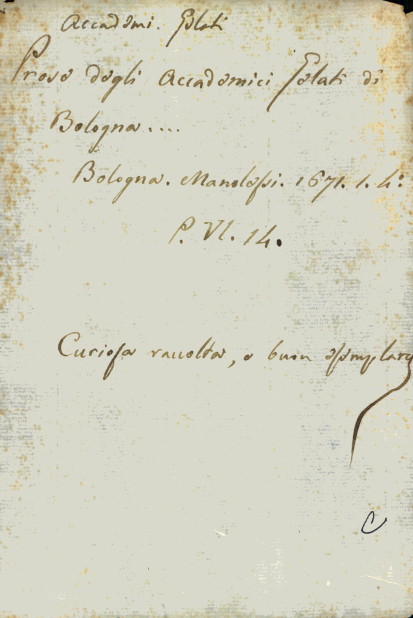 Accademi. Gelati
Prose degli Accademici Gelati di
Bologna....
Bologna. Manolessi. 1671. 1. 4:
P. VI. 14.
Curiosa raccolta, e buon esemplare
C